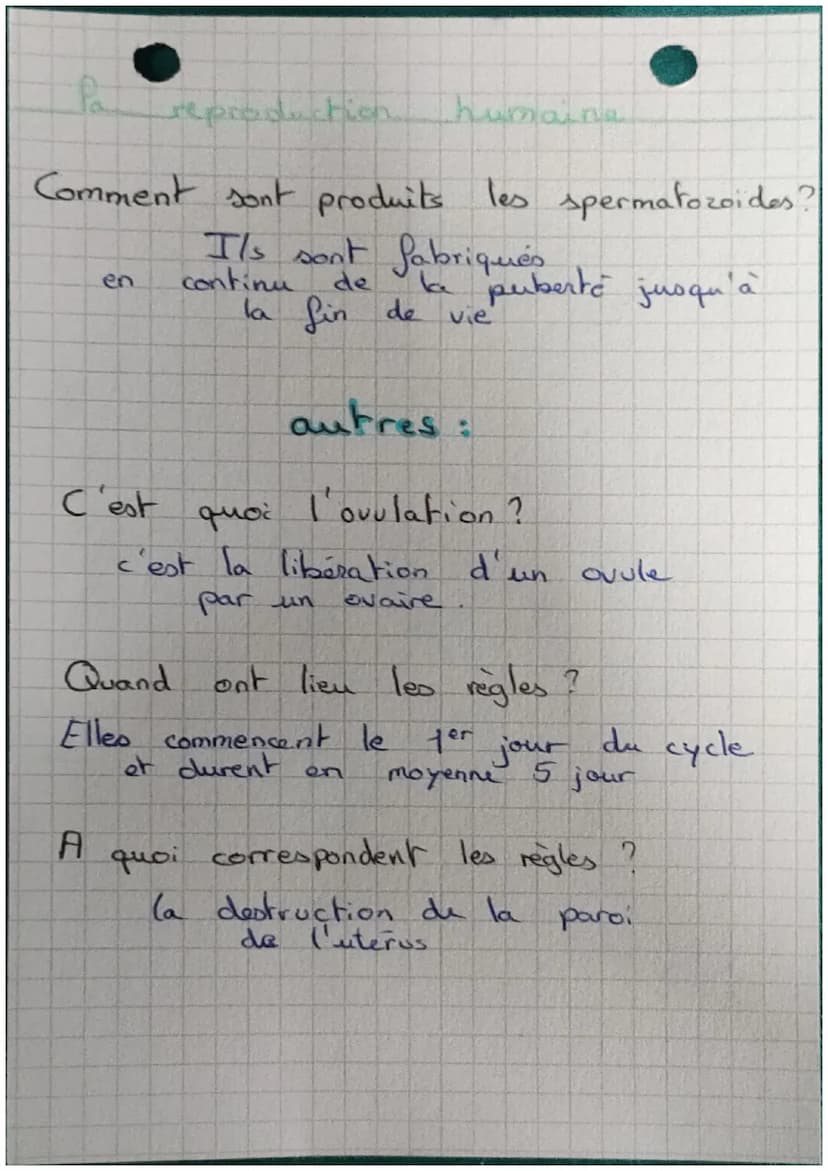 La reproduction humaine
Comment sont produits les spermatozoides?
Ils sont fabriqués
en continu de la puberté jusqu'à
la fin de vie
autres :
C'est quoi l'ovulation ?
c'est la libération d'un ovule
par un ovaire.
Quand ont lieu les règles ?
Elles commencent le 1er jour du cycle
et durent en moyenne 5 jour
A quoi correspondent les règles ?
la destruction de la paroi
de l'uterus